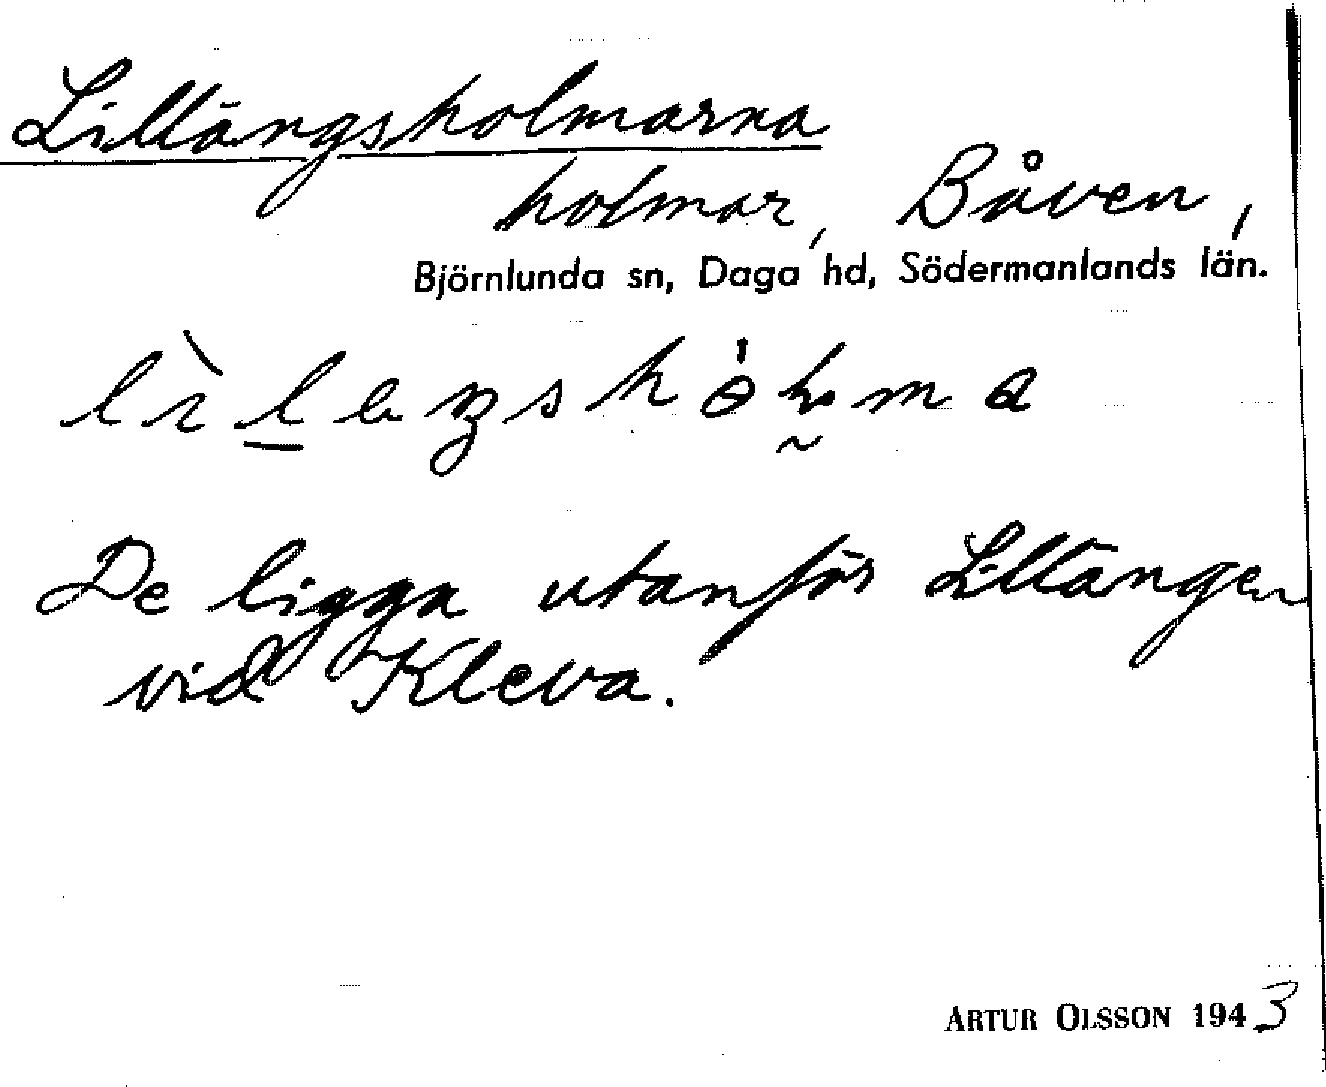 Lillängsholmarna
holmar, Båven,
Björnlunda sn, Daga hd, Södermanlands län.
De ligga utanför Lillängen
vid Kleva.
ARTUR OLSSON 1943